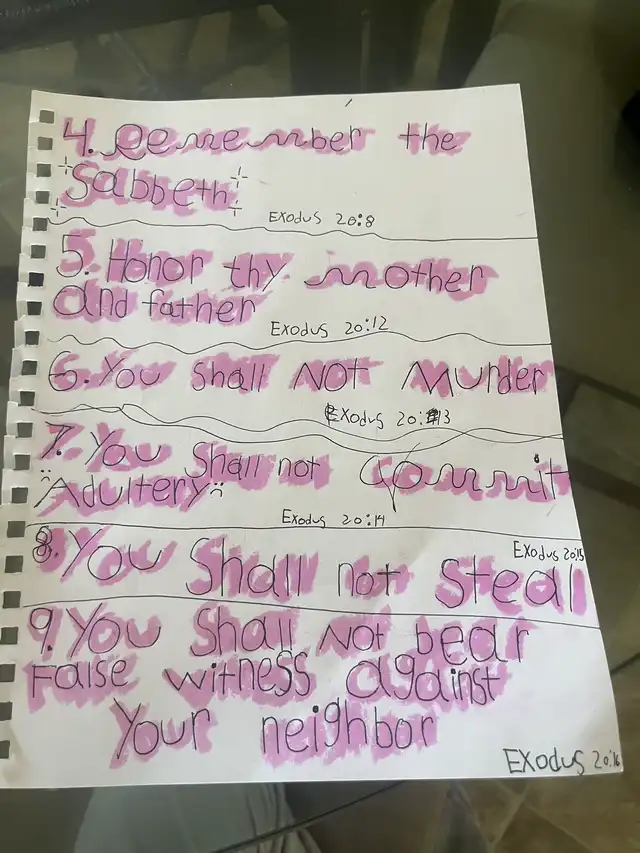 4. Remember the
Sabbeth
Exodus 20:8
5. Honor thy mother
and father
Exodus 20:12
6. You shall NOT Murder
Exodus 20:13
7. You shall not Commit
"Adultery"
Exodus 20:14
Exodus 20:15
8. You Shall not Steal
9. You Shall Not bear
False witness against
Your neighbor
Exodus 20:16